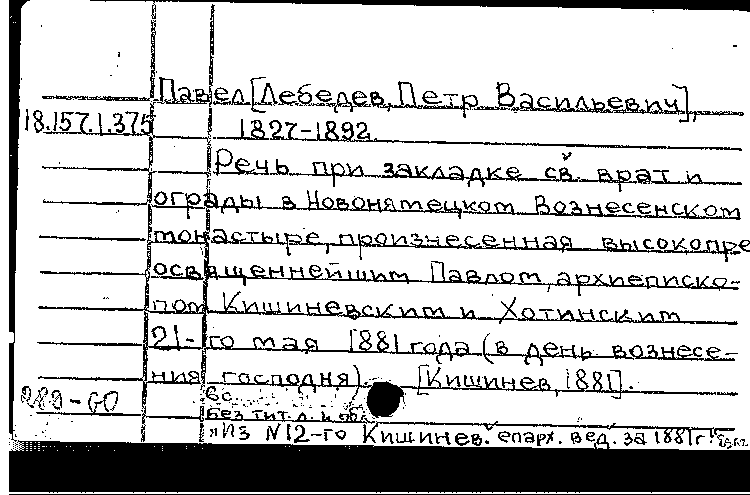 Павел [Лебедев, Петр Васильевич],
18.157.1.375 1827-1892.
Речь при закладке св. врат и
ограды в Новонямецком Вознесенском
монастыре, произнесенная высокопре
освященнейшим Павлом, архиеписко-
пом Кишиневским и Хотинским
21-го мая 1881 года (в день вознесе-
ния господня). [Кишинев, 1881].
8с.
Без тит. л. и обл.
"Из N12-го Кишинев. епарх. вед. за 1881г.